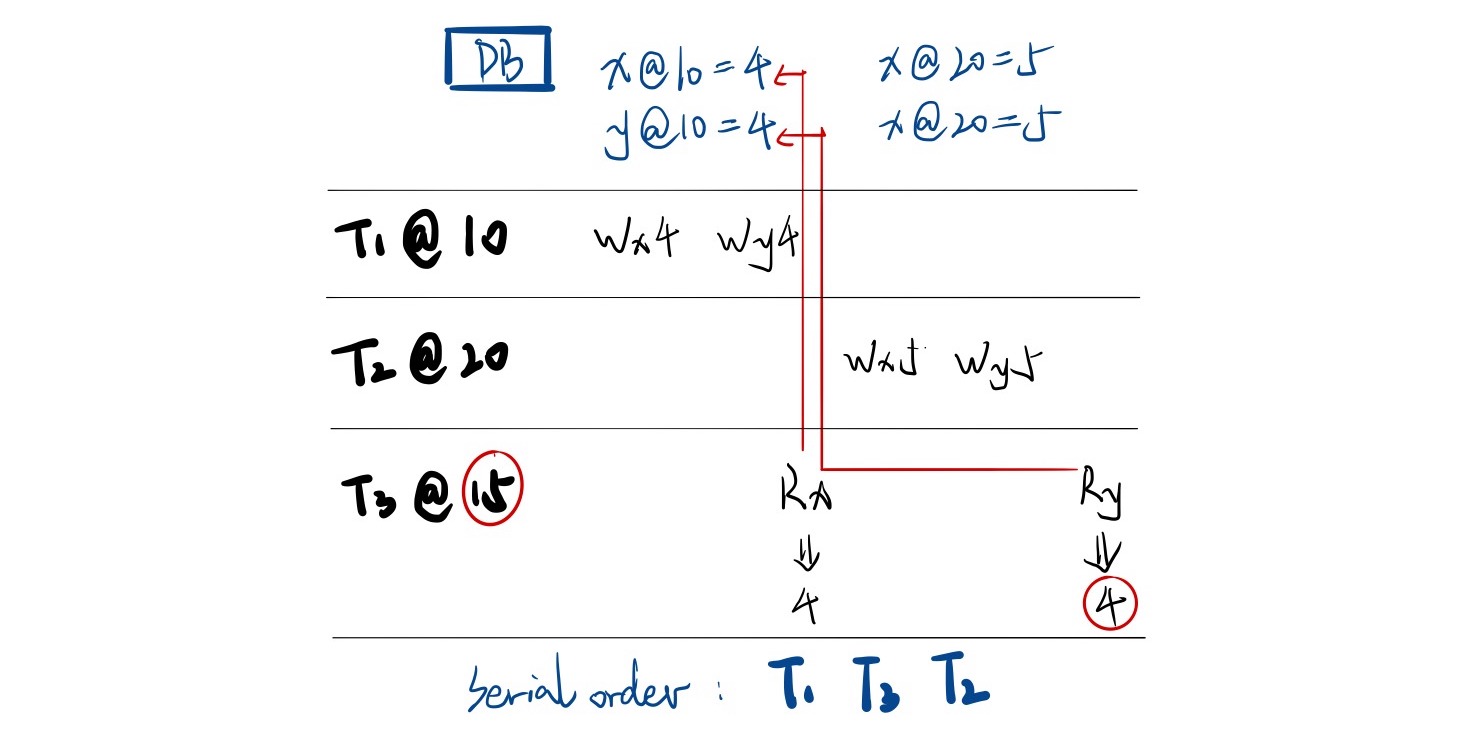 DB x@10=4 x@20=5
y@10=4 x@20=5
T1@10 Wx4 Wy4
T2@20 Wx5 Wy5
T3@15 Rx Ry
⇓ ⇓
4 4
Serial order : T1 T3 T2